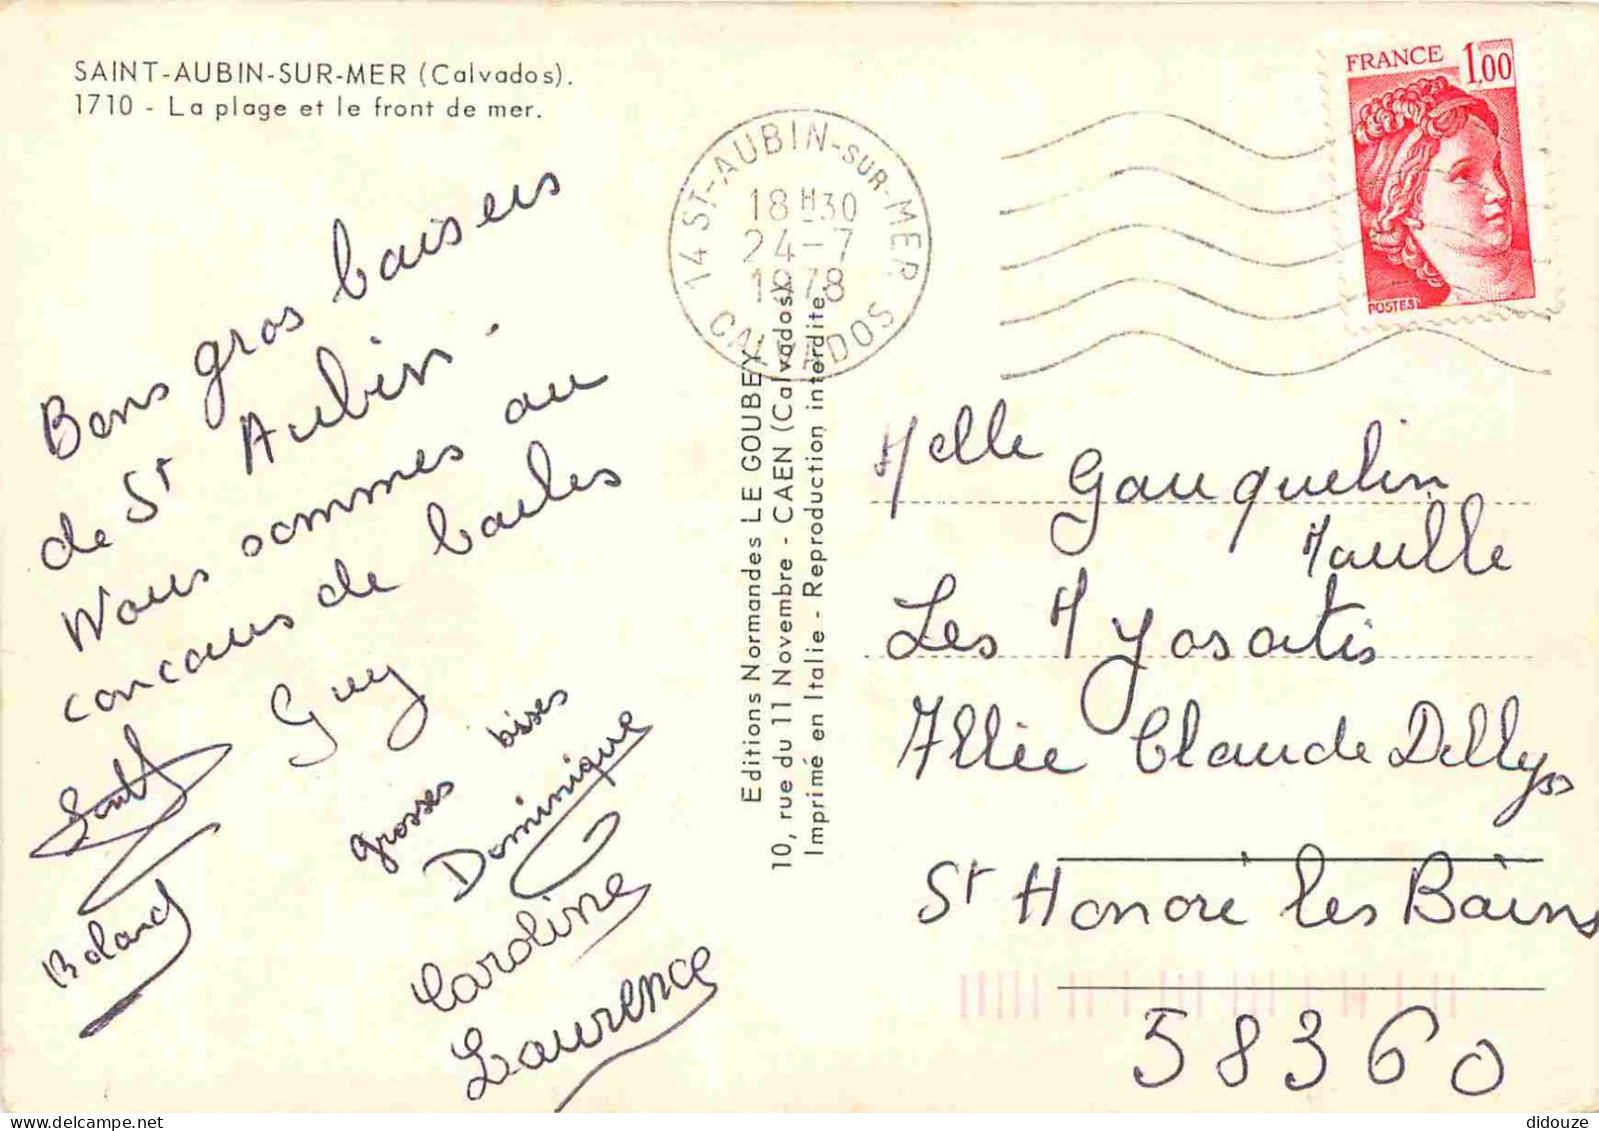 SAINT-AUBIN-SUR-MER (Calvados).
1710 - La plage et le front de mer.
Bons gros baisers
de St Aubin -
Nous sommes au
concours de boules
Guy
Roland
grosses bises
Dominique
Caroline
Laurence
Editions Normandes LE GOUBEY
10, rue du 11 Novembre - CAEN (Calvados)
Imprimé en Italie - Reproduction interdite
14 ST-AUBIN-SUR-MER
18H30
24-7
1978
CALVADOS
FRANCE 1,00
POSTES
Melle Gauquelin
Les Myosotis
Allée Claude Dellys
St Honoré les Bains
58360
delcampe.net
didouze